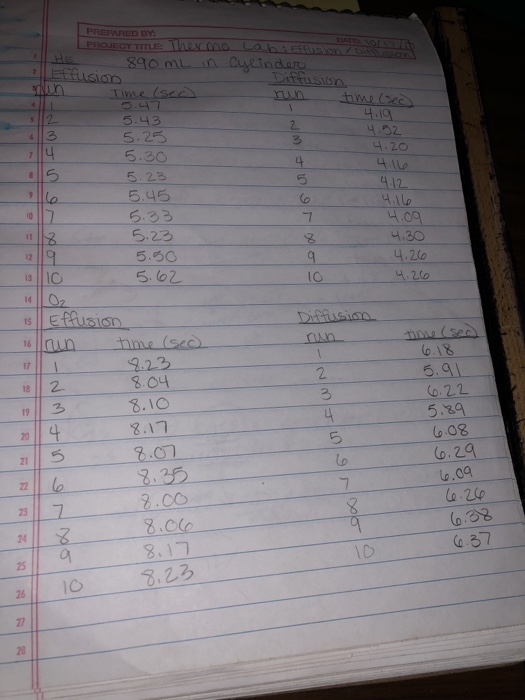 PREPARED BY:
PROJECT TITLE: Thermo Lab: Effusion / Diffusion
1 He 890 mL in Cylinder
2 Effusion Diffusion
run Time (sec) run time (sec)
4 5.47 1 4.19
5 2 5.43 2 4.02
6 3 5.25 3 4.20
7 4 5.30 4 4.16
8 5 5.23 5 4.12
9 6 5.45 6 4.16
10 7 5.33 7 4.09
11 8 5.23 8 4.30
12 9 5.50 9 4.26
13 10 5.62 10 4.26
14 O2
15 Effusion Diffusion
16 run time (sec) run time (sec)
17 1 8.23 1 6.18
18 2 8.04 2 5.91
19 3 8.10 3 6.22
20 4 8.17 4 5.89
21 5 8.07 5 6.08
22 6 8.35 6 6.29
23 7 8.00 7 6.09
24 8 8.06 8 6.26
25 9 8.17 9 6.38
26 10 8.23 10 6.37
27
28